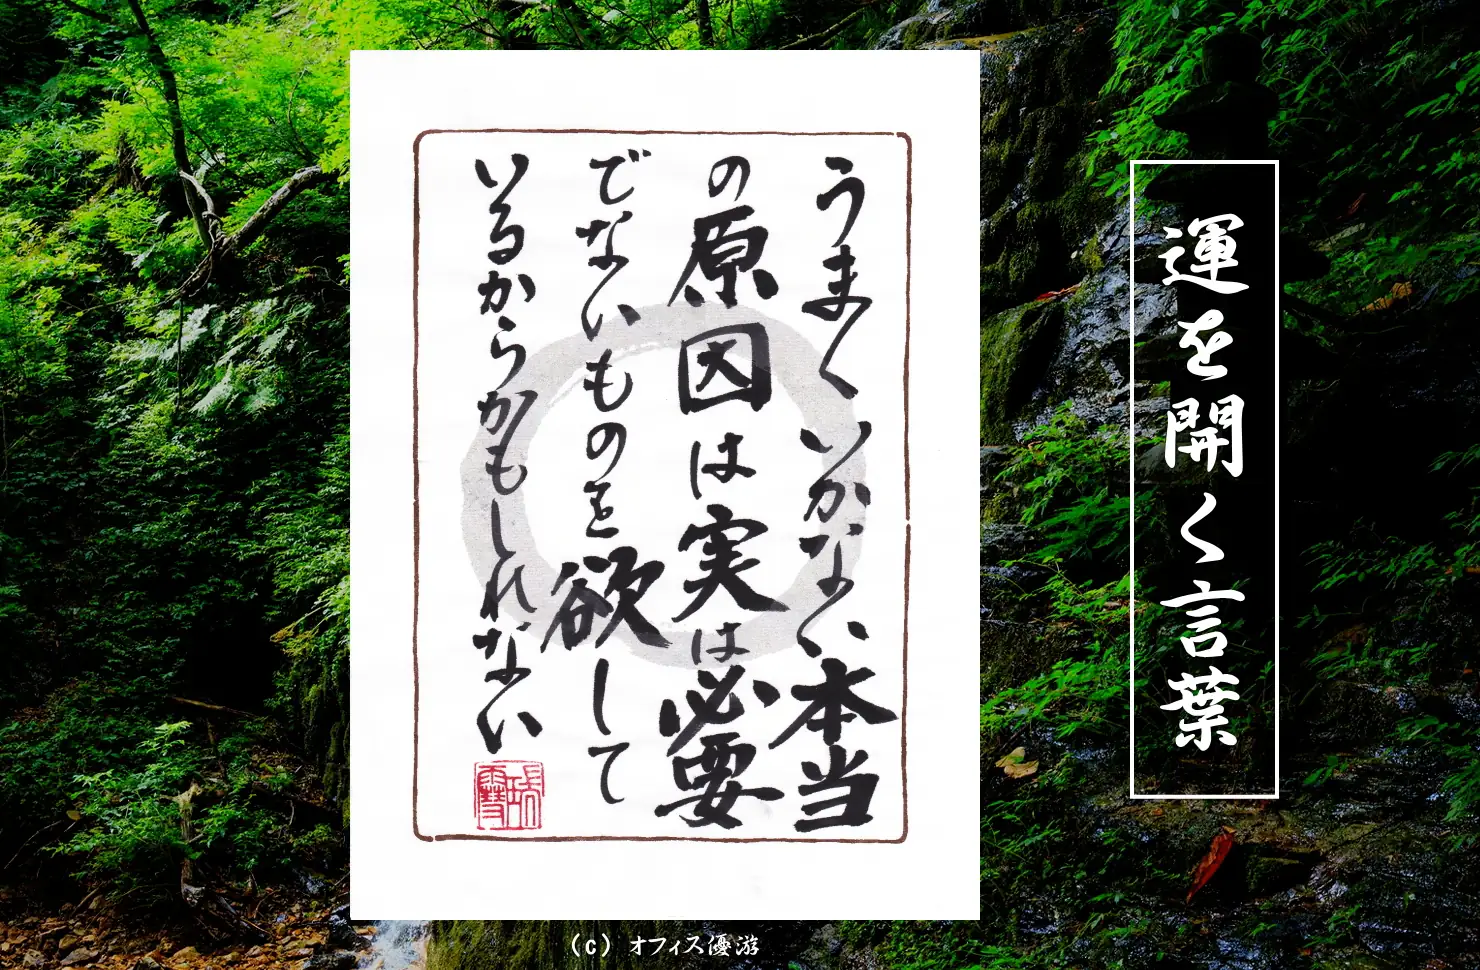 運を開く言葉
うまくいかない本当
の原因は実は必要
でないものを欲して
いるからかもしれない
(c) オフィス優游